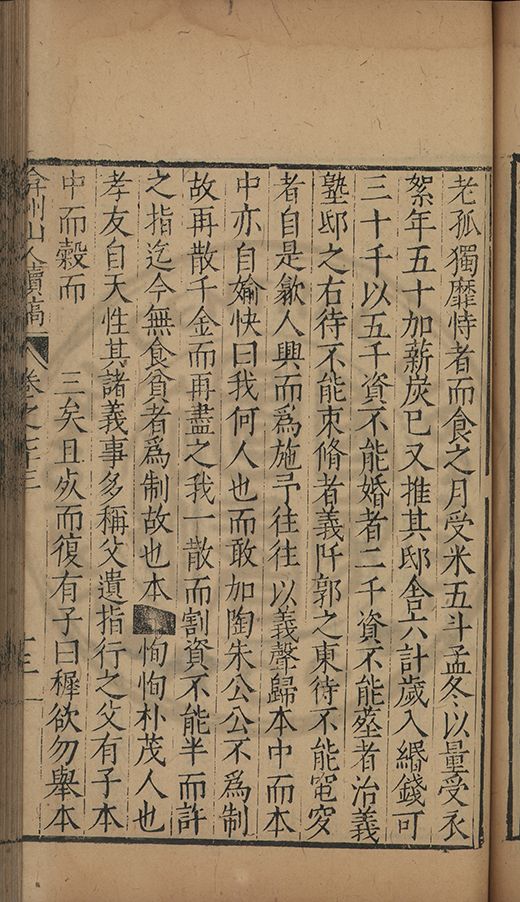 老孤獨靡恃者而食之月受米五斗孟冬以量受衣
絮年五十加薪炭已又推其邸舍六計歲入緡錢可
三十千以五千資不能婚者二千資不能塟者治義
塾邸之右待不能束脩者義阡郭之東待不能窀穸
者自是歙人興而爲施予往往以義聲歸本中而本
中亦自媮快曰我何人也而敢加陶朱公公不爲制
故再散千金而再盡之我一散而割資不能半而許
之指迄今無食貧者爲制故也本 恂恂朴茂人也
孝友自天性其諸義事多稱父遺指行之父有子本
中而穀而 三矣且歿而復有子曰樨欲勿舉本
弇州山人續稿 卷之 十三